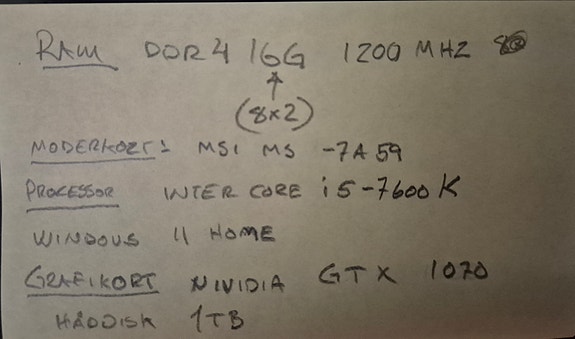 RAM DDR4 16G 1200 MHZ
(8x2)
MODERKORT: MSI MS -7A59
PROCESSOR INTER CORE i5-7600K
WINDOUS 11 HOME
GRAFIKORT NIVIDIA GTX 1070
HÅDDISK 1TB